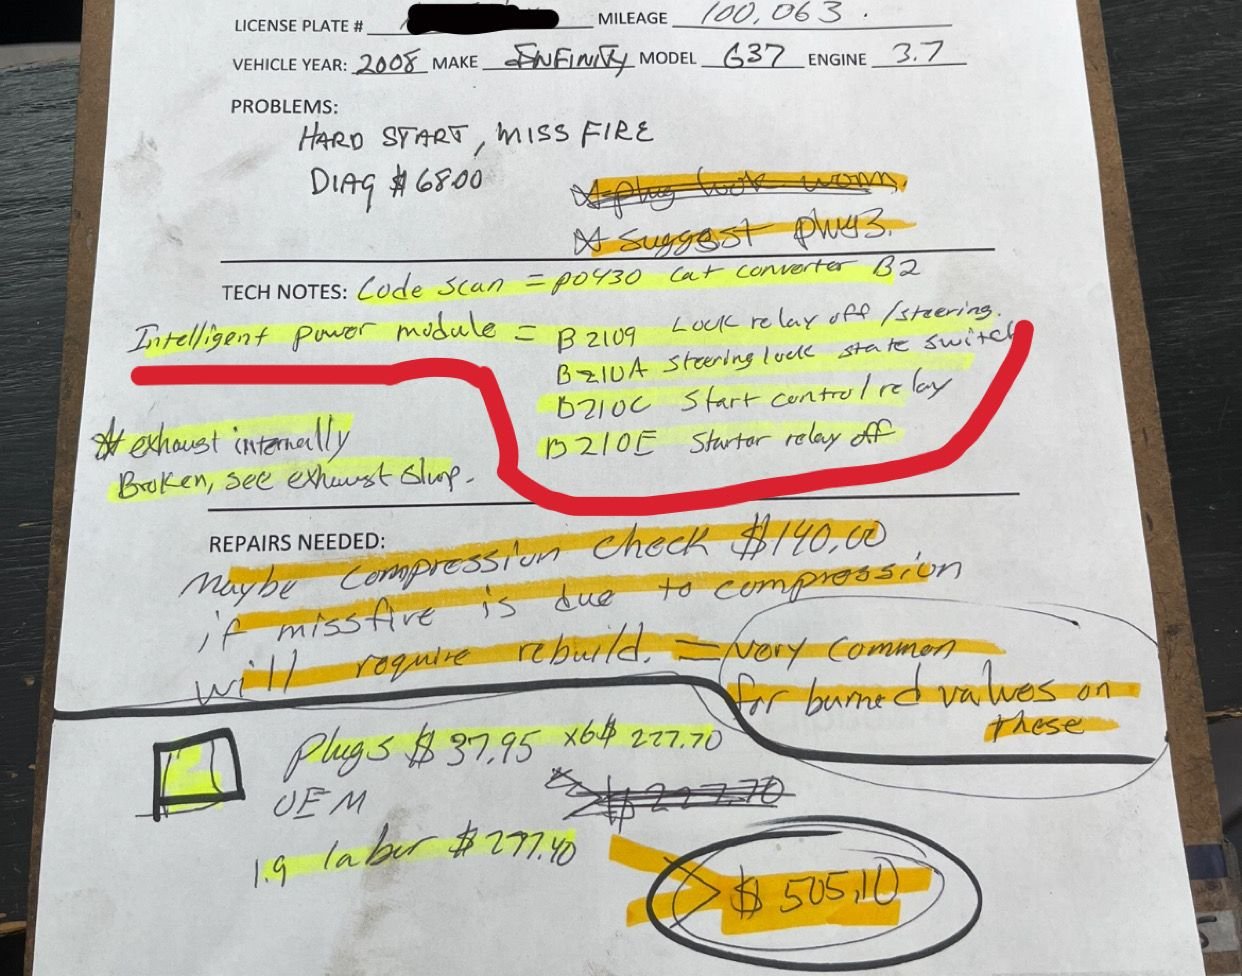 LICENSE PLATE # MILEAGE 100,063.
VEHICLE YEAR: 2008 MAKE INFINITY MODEL G37 ENGINE 3.7
PROBLEMS:
HARD START, MISS FIRE
DIAG $68.00
* plug look worn.
* suggest plugs.
TECH NOTES: Code scan = P0430 Cat converter B2
Intelligent power module = B2109 Lock relay off /steering.
B210A Steering lock state switch
B210C Start control relay
B210E Starter relay off
* exhaust internally
Broken, see exhaust shop.
REPAIRS NEEDED:
Maybe Compression check $140.00
if missfire is due to compression
will require rebuild. = very common
for burned valves on
these
Plugs $37.95 x6 $ 227.70
OEM
$227.70
1.9 labor $277.40
$505.10